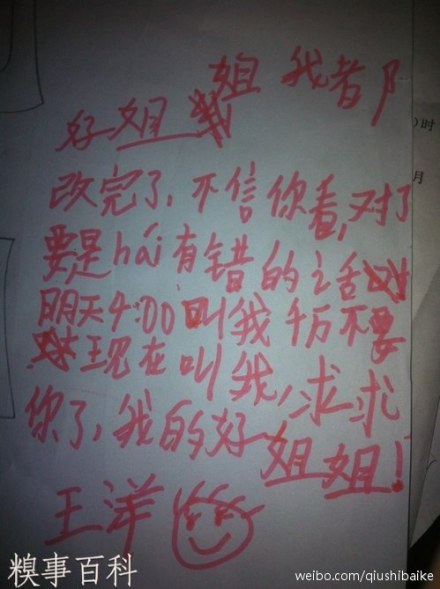 好姐姐 我都
改完了,不信你看,对了
要是hái有错的话
明天4:00叫我千万不要
现在叫我,求求
你了,我的好姐姐!
王洋
0时
月
糗事百科
weibo.com/qiushibaike